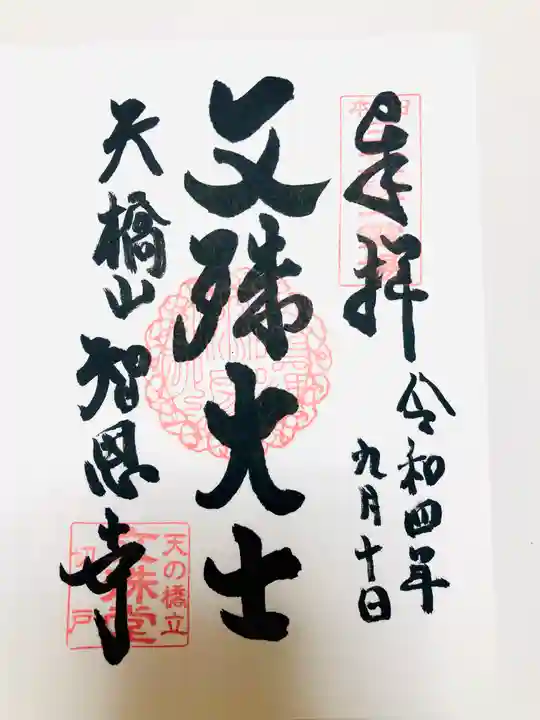 奉拝
令和四年
九月十日
文殊大士
天橋山智恩寺
天の橋立
文殊堂
切戸